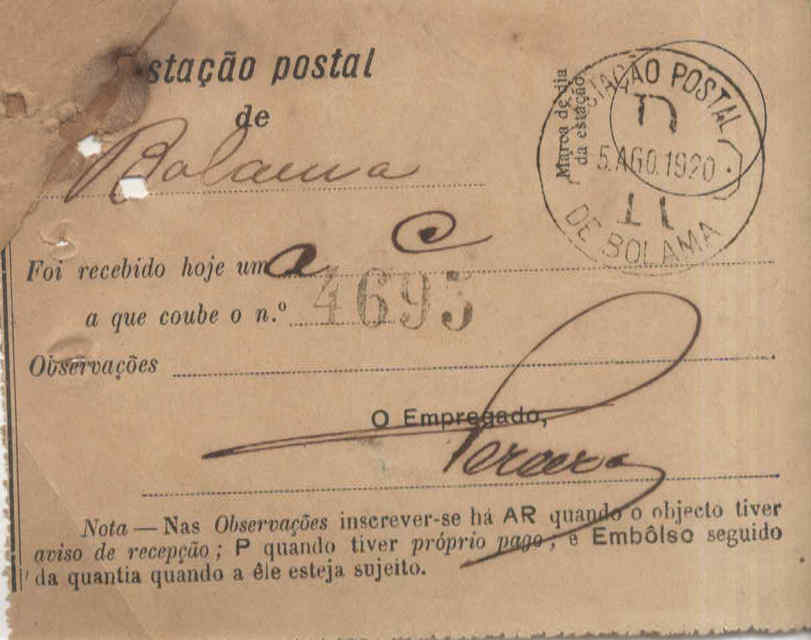 stação postal
de
Bolama
Marca de dia
da estação
ESTAÇÃO POSTAL
5.AGO.1920
DE BOLAMA
Foi recebido hoje uma C
a que coube o n.º 4695
Observações
O Empregado,
Pereira
Nota — Nas Observações inscrever-se há AR quando o objecto tiver
aviso de recepção; P quando tiver próprio pago, e Embôlso seguido
da quantia quando a êle esteja sujeito.